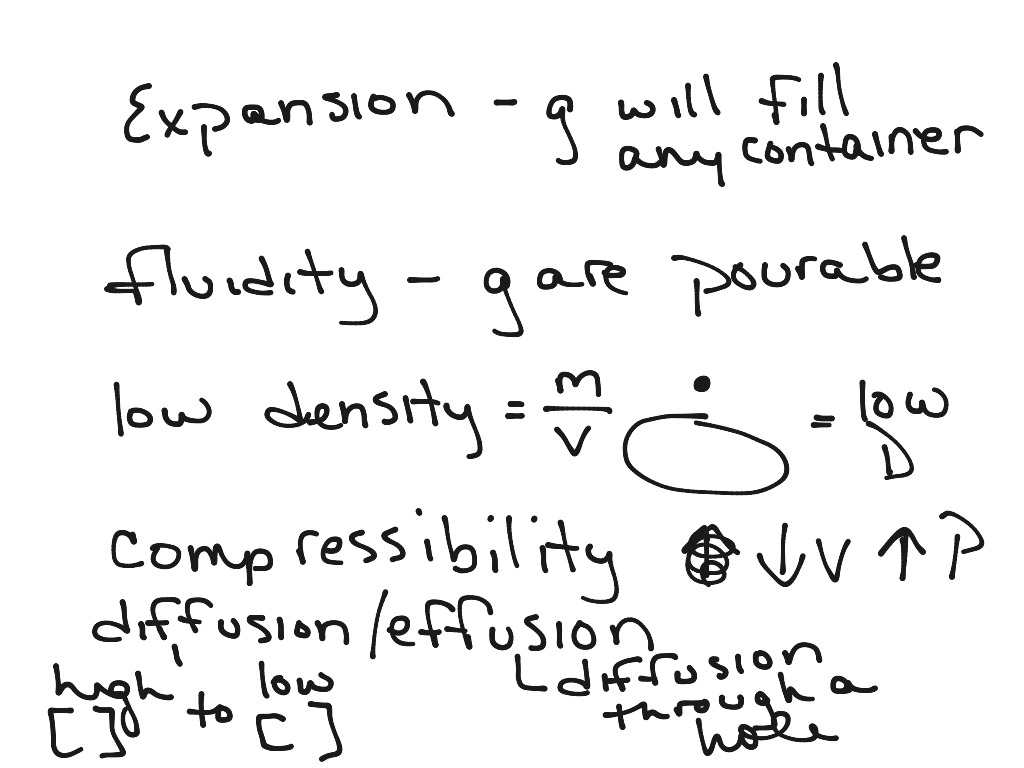 Expansion - g will fill
any container
fluidity - g are pourable
low density = m/v = low D
compressibility ↓V ↑P
diffusion/effusion
high [ ] to low [ ]
diffusion
through a
hole